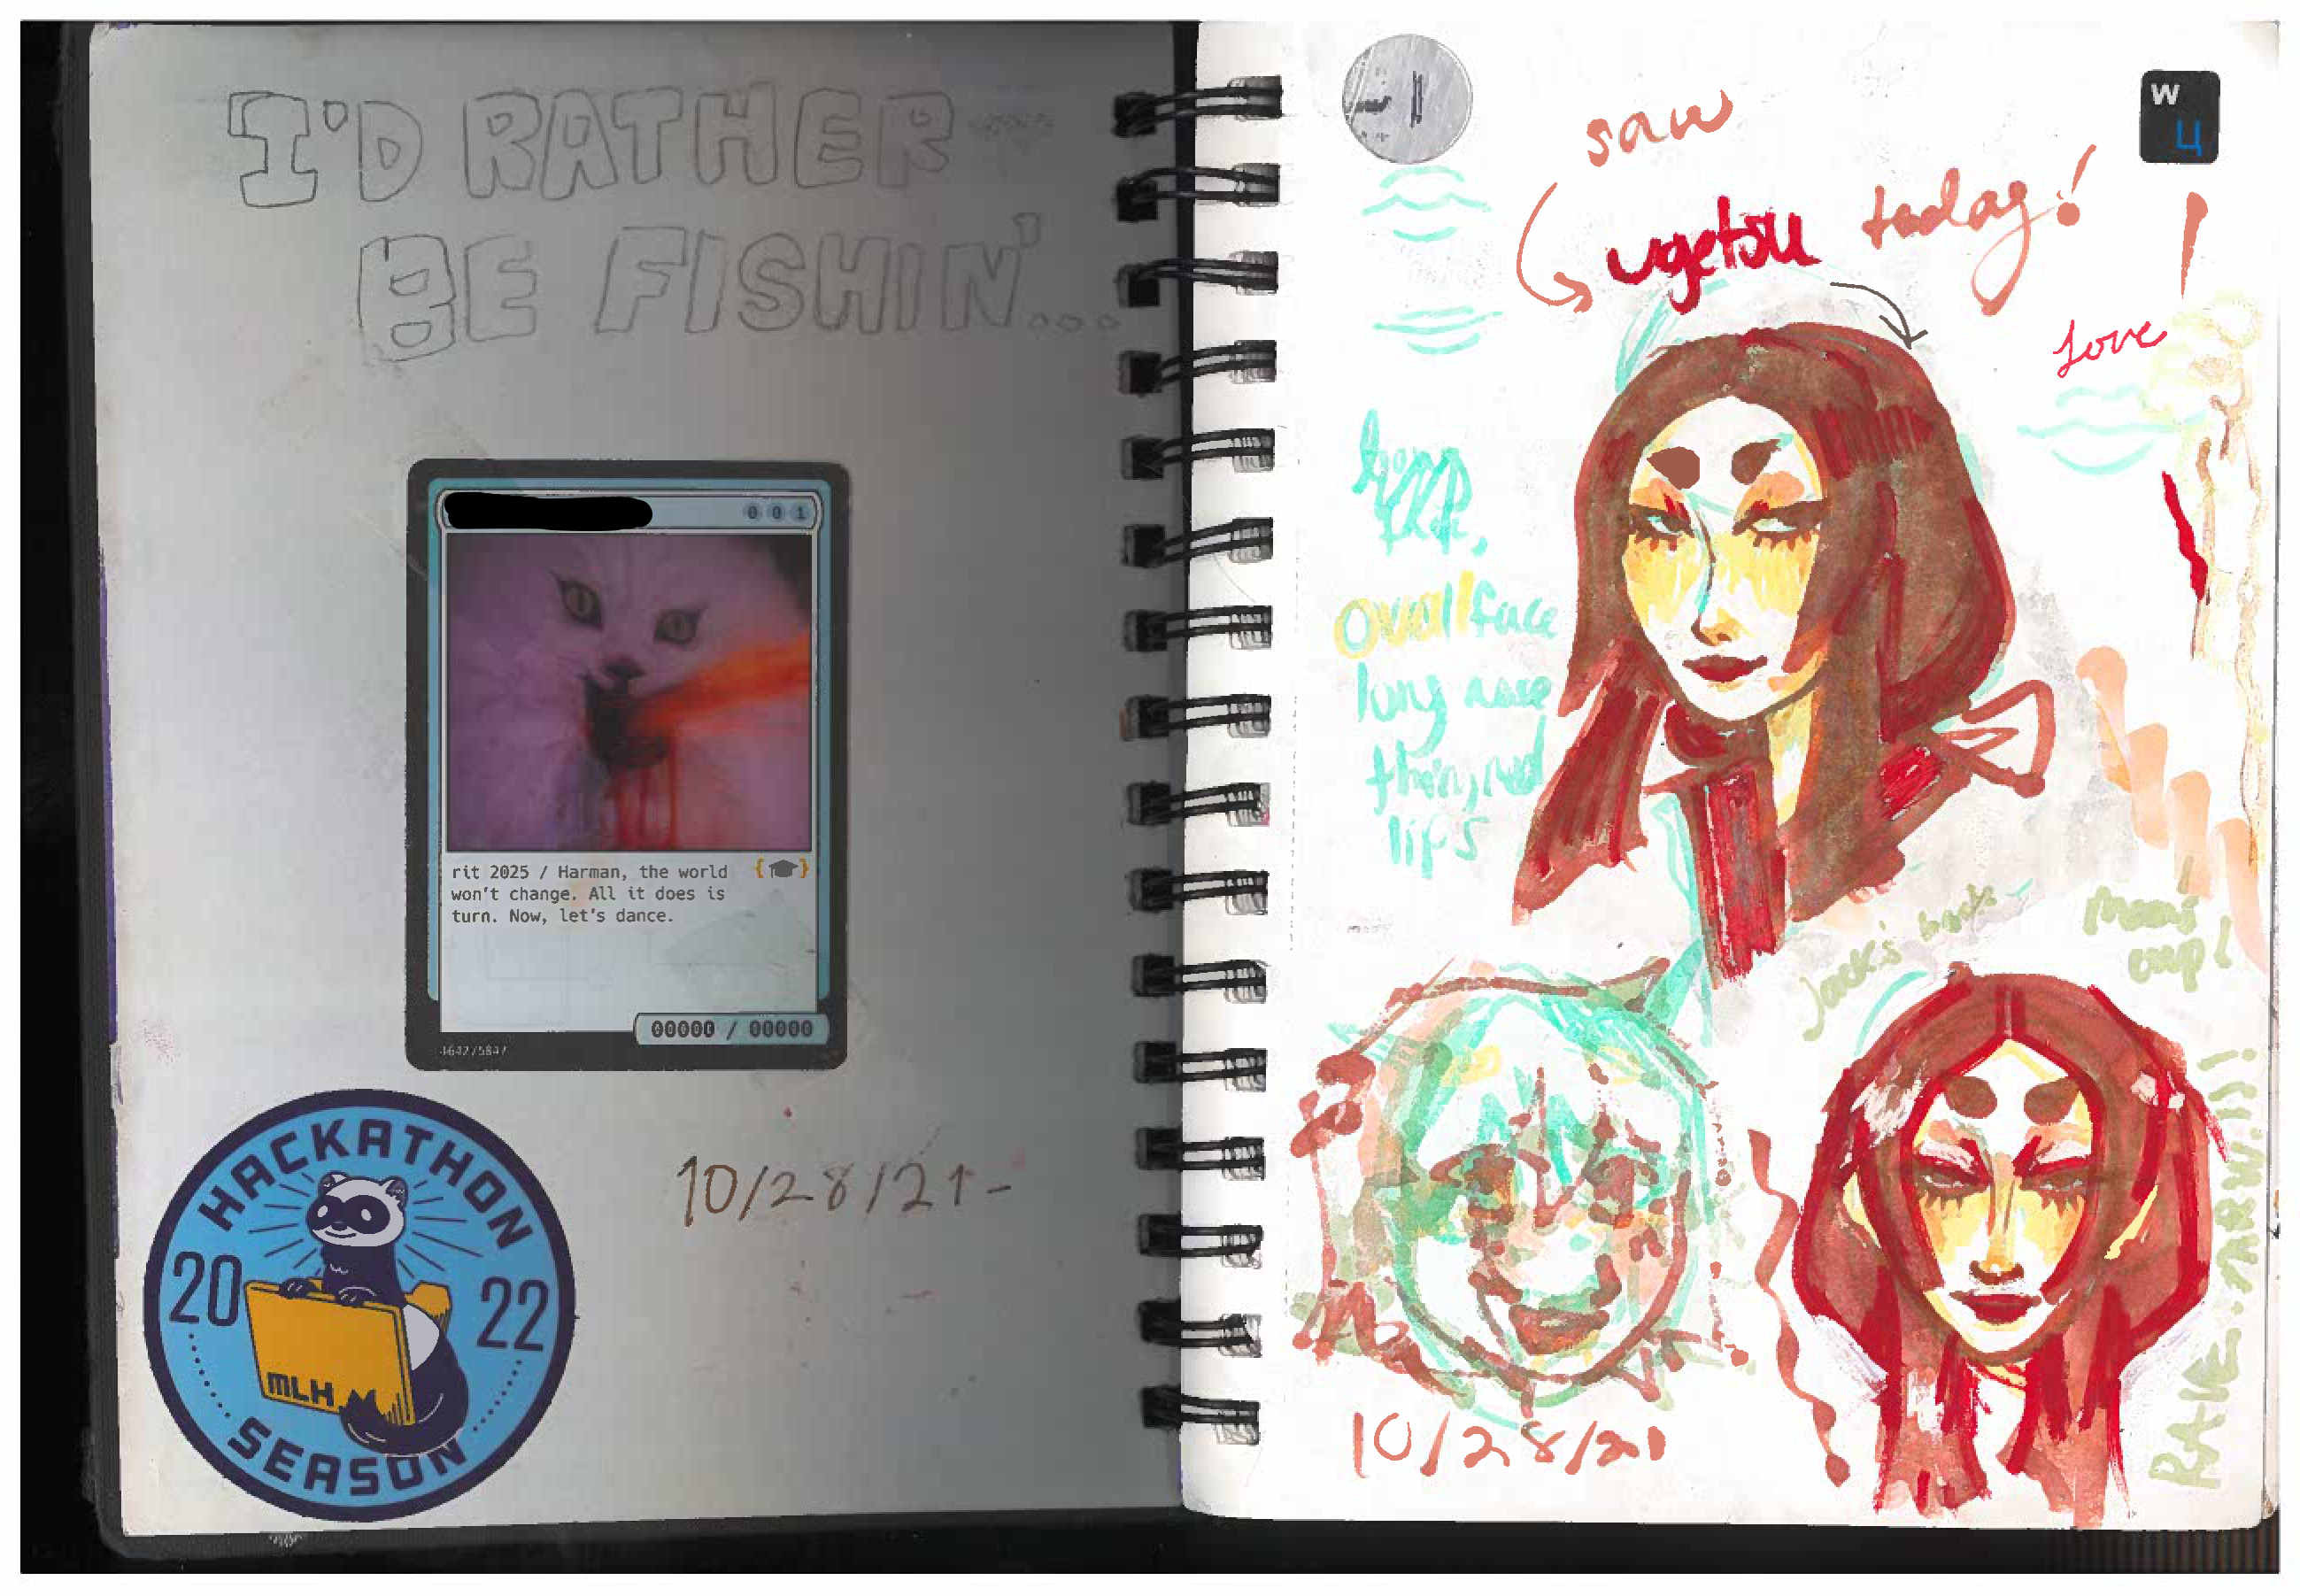 I'D RATHER
BE FISHIN'...
001
rit 2025 / Harman, the world
won't change. All it does is
turn. Now, let's dance.
00000 / 00000
4642/5847
HACKATHON
20 22
MLH
SEASON
10/28/21-
W
Ц
saw
ugetsu today!
love
oval face
long nose
thin, red
lips
Jack's back
Mean's
cup!
10/28/21